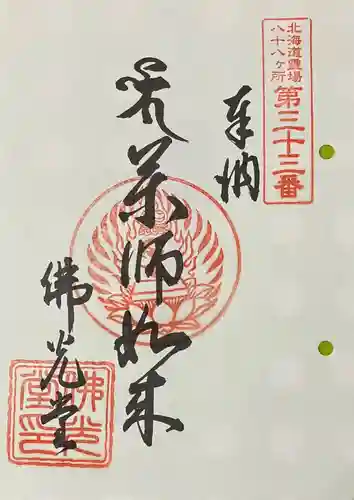 北海道霊場
八十八ヶ所
第三十三番
奉納
薬師如来
佛光堂
佛光堂印